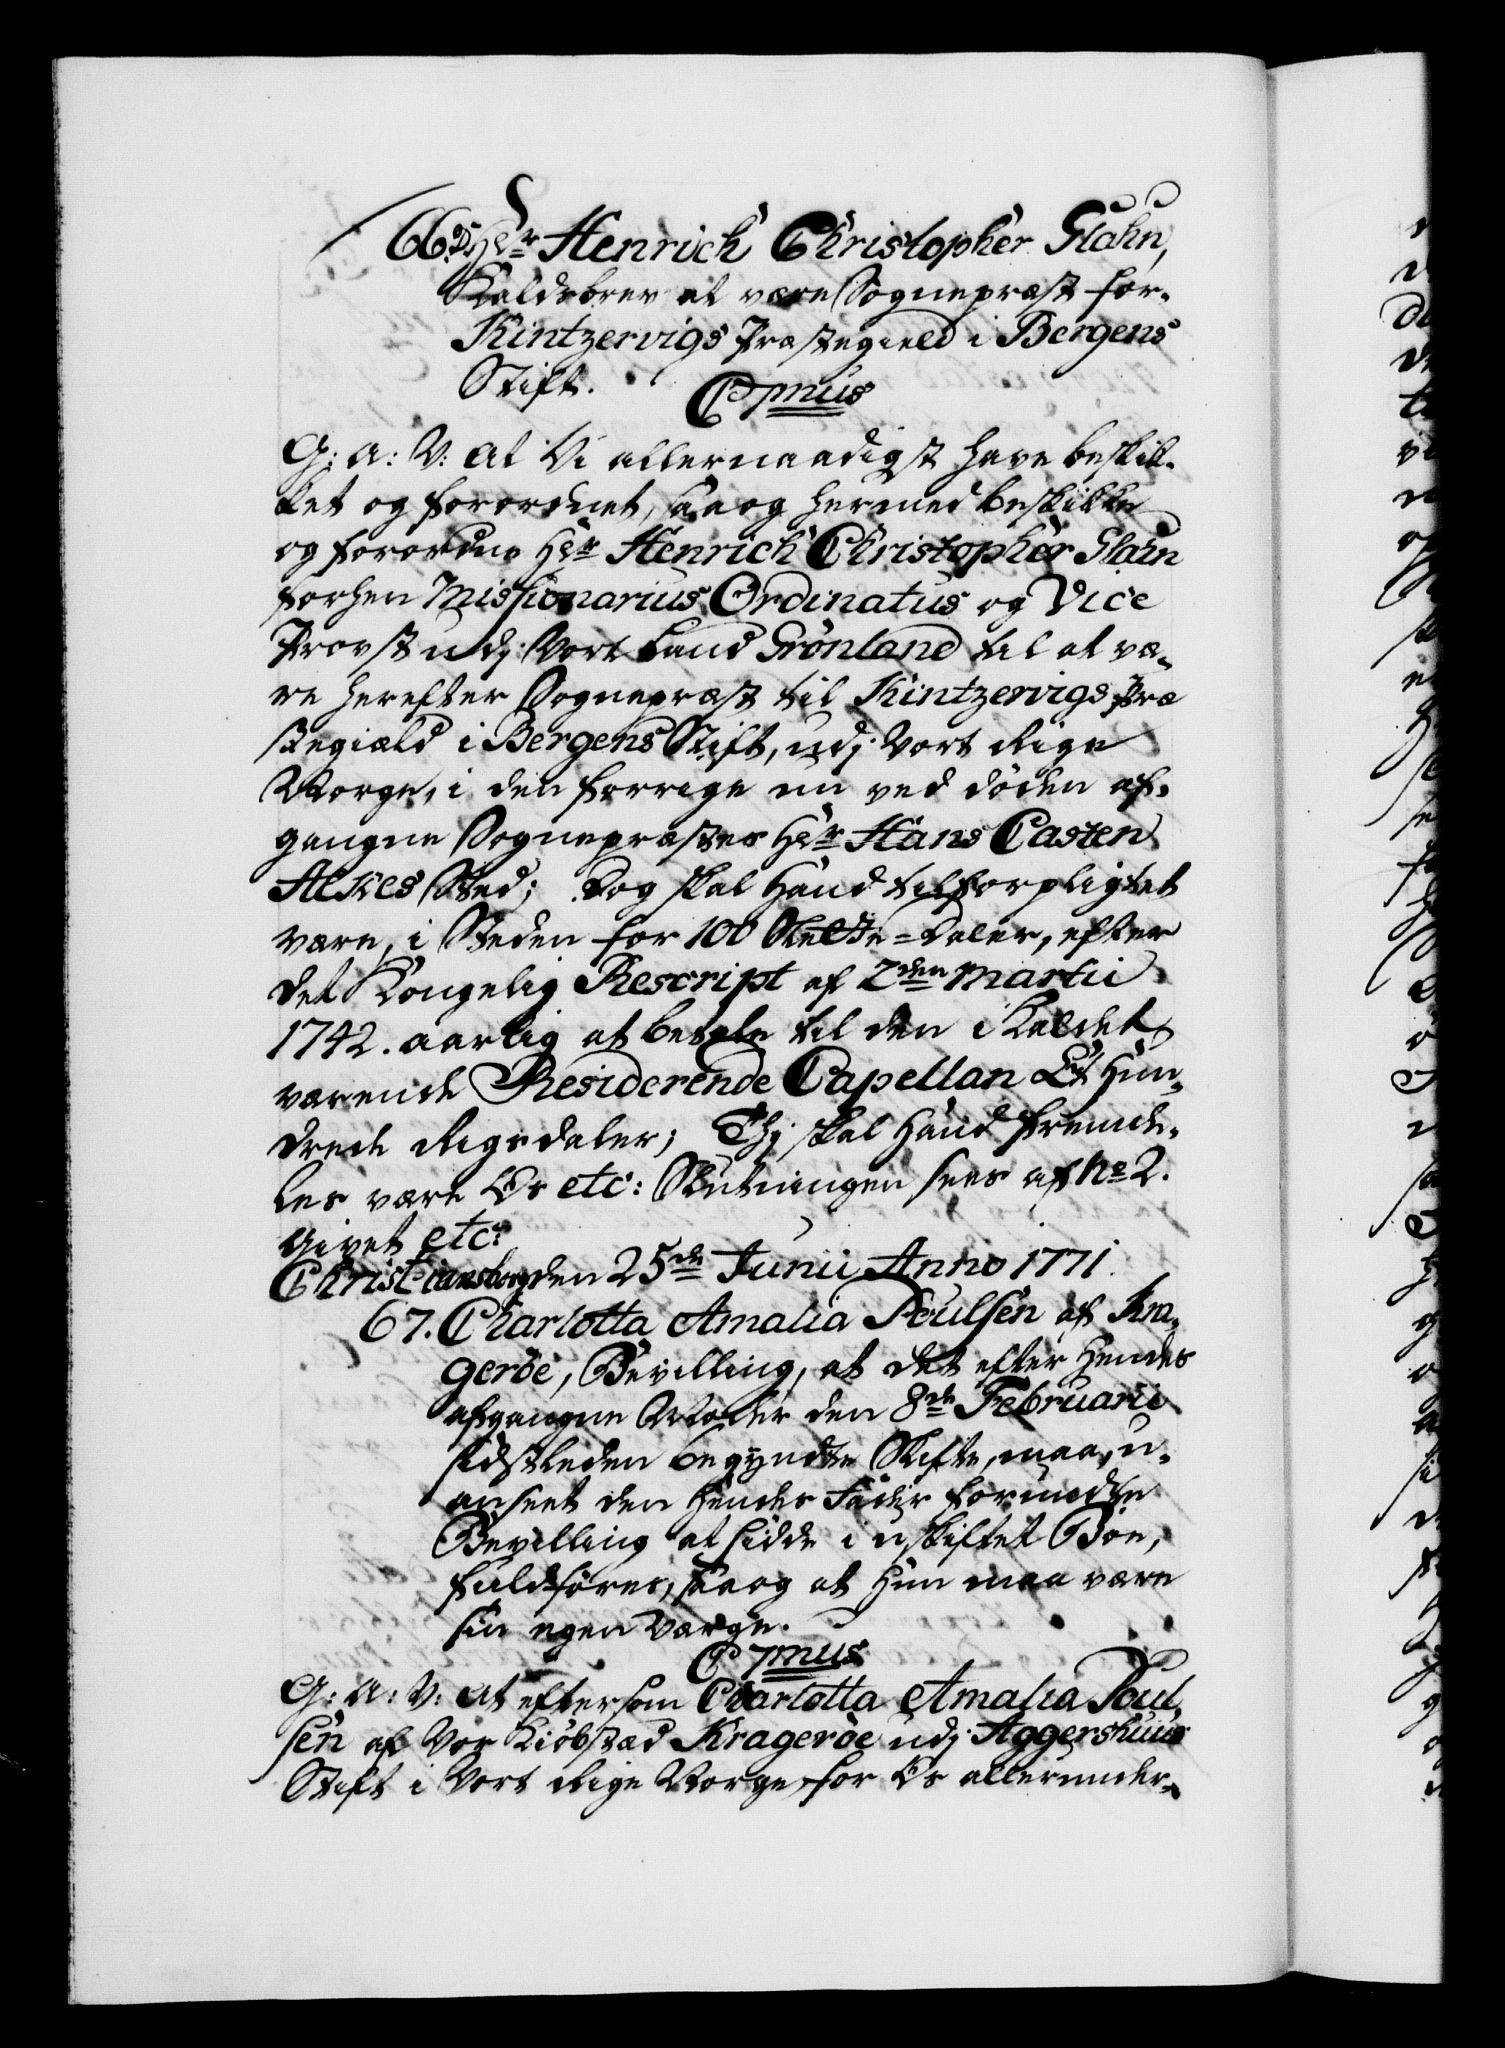 66. Hr. Henrich Christopher Glahn,
Kaldsbrev at være Sognepræst for
Kintzervigs Præstegield i Bergens
Stift.
C7mus
G: A: V: at Vi allernaadigst have beskik-
ket og forordnet, saa og hermed beskikke
og forordne Hr. Henrich Christopher Glahn
forhen Missionarius Ordinatus og Vice
Provst udj Vort Land Grönland til at væ-
re herefter Sognepræst til Kintzervigs Præ
stegiæld i Bergens Stift, udj Vort Rige
Norge, i den forrige nu ved döden af-
gangne Sognepræstes Hr. Hans Casten
Atkes Sted; Dog skal Hand tilforpligtet
være, i Steden for 100 Slette-Daler, efter
det Kongelig Rescript af 2den Martii
1742. aarlig at betale til den i Kaldet
værende Residerende Capellan Et Hun-
drede Rigsdaler; Thj skal Hand fremde-
les være Os etc: Slutningen sees af No 2.
Givet etc:
Christiansborg den 25de Junii Anno 1771.
67. Charlotta Amalia Poulsen af Kra-
geröe, Bevilling, at det efter Hendes
afgangne Moder den 8de Februarii
sidstleden begyndte Skifte, maa, u-
anseet den Hendes Fader forundte
Bevilling at sidde i uskiftet Boe,
fuldföres, saa og at Hun maa være
sin egen Værge.
C7mus
G: A: V: at eftersom Charlotta Amalia Poul
sen af Vor Kiöbstæd Krageröe udj Aggershuus
Stift i Vort Rige Norge, for Os allerunder-